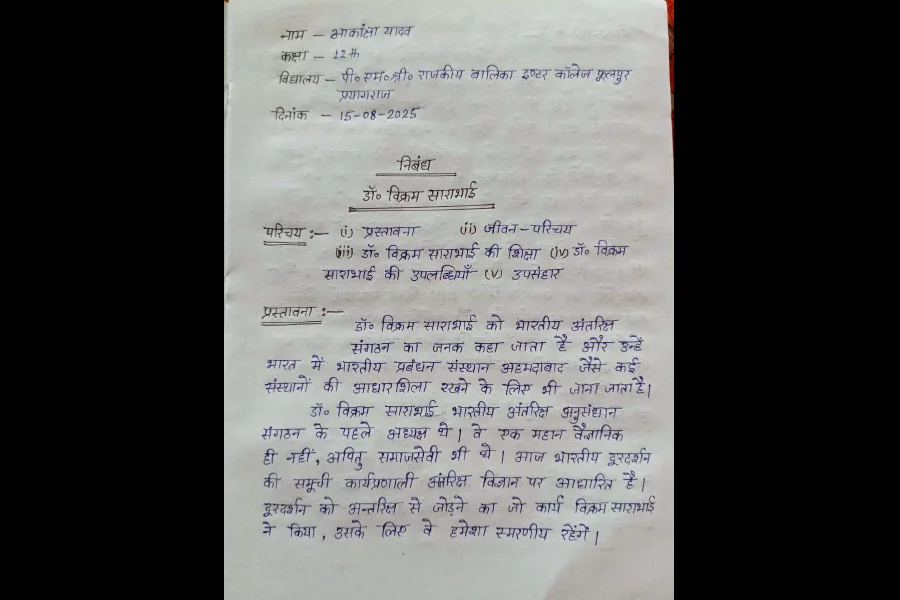 नाम – आकांक्षा यादव
कक्षा – 12th
विद्यालय – पी० एम० श्री० राजकीय बालिका इण्टर कॉलेज फूलपुर
प्रयागराज
दिनांक – 15-08-2025
निबंध
डॉ० विक्रम साराभाई
परिचय :— (i) प्रस्तावना (ii) जीवन-परिचय
(iii) डॉ० विक्रम साराभाई की शिक्षा (iv) डॉ० विक्रम
साराभाई की उपलब्धियाँ (v) उपसंहार
प्रस्तावना :—
डॉ० विक्रम साराभाई को भारतीय अंतरिक्ष
संगठन का जनक कहा जाता है और उन्हें
भारत में भारतीय प्रबंधन संस्थान अहमदाबाद जैसे कई
संस्थानों की आधारशिला रखने के लिए भी जाना जाता है।
डॉ० विक्रम साराभाई भारतीय अंतरिक्ष अनुसंधान
संगठन के पहले अध्यक्ष थे। वे एक महान वैज्ञानिक
ही नहीं, अपितु समाजसेवी भी थे। आज भारतीय दूरदर्शन
की समूची कार्यप्रणाली अंतरिक्ष विज्ञान पर आधारित है।
दूरदर्शन को अन्तरिक्ष से जोड़ने का जो कार्य विक्रम साराभाई
ने किया, उसके लिए वे हमेशा स्मरणीय रहेंगें।